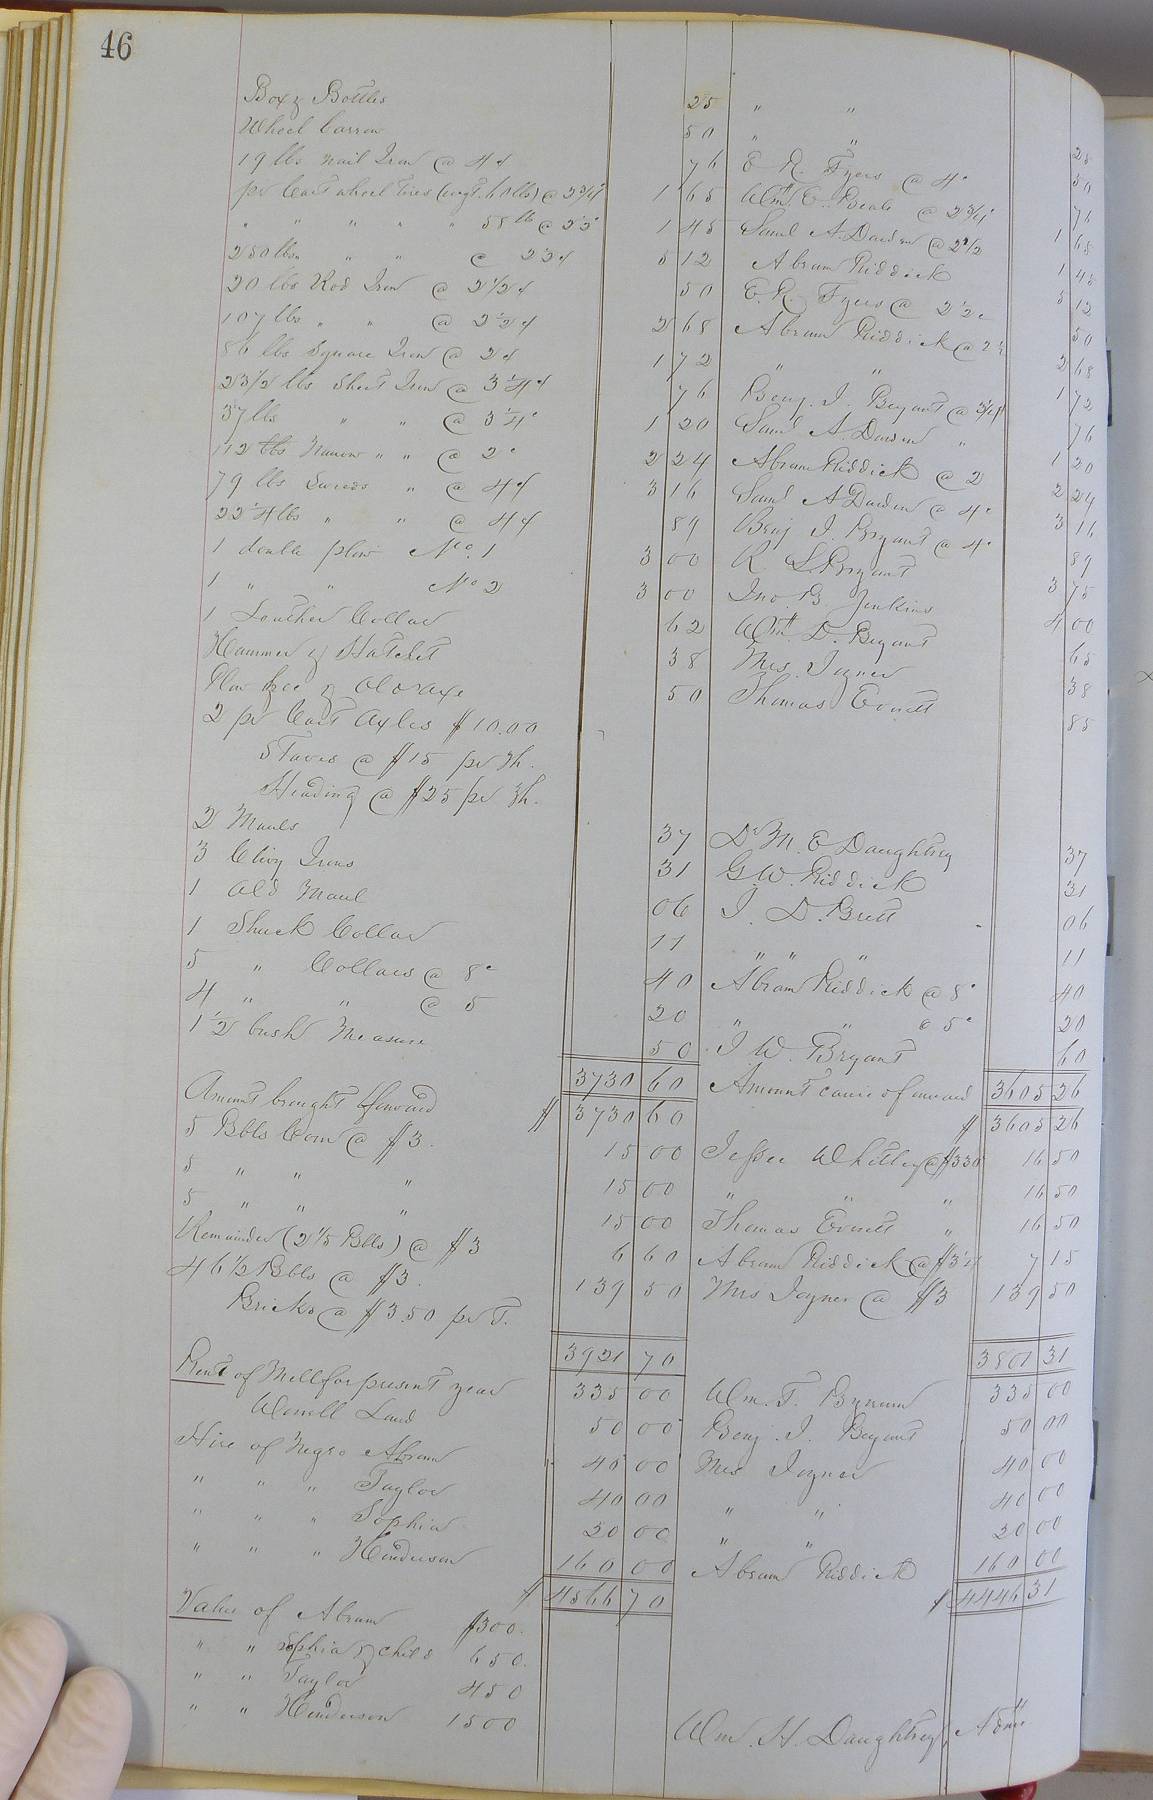 46
Box & Bottles 25 " "  25
Wheel barrow 50 " " 50
19 lbs nail Iron @ 4¢ 76 E. R. Fyers @ 4c 76
pr Cart wheel Tires (wgt. 60 lbs) @ 2 3/4c 1 65 Wm E. Beale @ 2 3/4c 1 65
" " " " " 58 lb @ 2½c 1 45 Saml A. Darden @ 2½ 1 45
250 lbs " " @ 2½¢ 5 12 Abram Riddick 5 12
20 lbs Rod Iron @ 2½¢ 50 E. R. Fyers @ 2½c 50
107 lbs " " @ 2½¢ 2 68 Abram Riddick @ 2½ 2 68
86 lbs Square Iron @ 2¢ 1 72 " " 1 72
23½ lbs Sheet Iron @ 3¼¢ 76 Benj. J. Bryant @ 3¼¢ 76
37 lbs " " @ 3¼c 1 20 Saml A. Darden " 1 20
112 lbs Narrow " " @ 2c 2 24 Abram Riddick @ 2 2 24
79 lbs " @ 4¢ 3 16 Saml A Darden @ 4c 3 16
22¼ lbs " " @ 4¢ 89 Benj J. Bryant @ 4c 89
1 double plow No. 1 3 00 R. S. Bryant 3 75
1 " " No 2 3 00 Jno. B. Jenkins 4 00
1 Leather Collar 62 Wm D. Bryant 65
Hammer & Hatchet 38 Mrs. Joyner 38
Plow hoe & Old axe 50 Thomas Everett 85
2 pr Cart Axles $10.00
Staves @ $15 pr Th.
Heading @ $25 pr Th.
2 Mauls 37 Dr M. E Daughtrey 37
3 Clivy Irons 31 G. W. Riddick 31
1 Old Maul 06 J. D. Britt 06
1 Shuck Collar 11 " " " 11
5 " Collars @ 8c 40 Abram Riddick @ 8c 40
4 " " @ 5 20 " " @ 5c 20
1 ½ bush Measure 50 J. W. Bryant 60
3730 60 Amount carried forward 3605 26
Amount brought forward $ 3730 60 $ 3605 26
5 Bbls Corn @ $3. 15 00 Jesse Whitley @ $3 30 16 50
5 " " " 15 00 " " " 16 50
5 " " " 15 00 Thomas Everett " 16 50
Remainder (2 1/5 Bbls) @ $3 6 60 Abram Riddick @ $3¼ 7 15
46½ Bbls @ $3. 139 50 Mrs Joyner @ $3 139 50
Bricks @ $3.50 pr T.
3921 70 3801 31
Rent of Mill for present year 335 00 Wm. T. Bynum 335 00
Worrell Land 50 00 Benj. J. Bryant 50 00
Hire of Negro Abram 40 00 Mrs Joyner 40 00
" " " Taylor 40 00 " " 40 00
" " " Sophia 20 00 " " 20 00
" " " Henderson 160 00 Abram Riddick 160 00
$ 4566 70 $ 4446 31
Value of Abram $300.
" " Sophia & child 650.
" " Taylor 450
" " Henderson 1500
Wm. H. Daughtrey, Admr